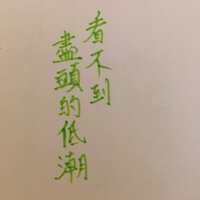 看不到
盡頭的低潮